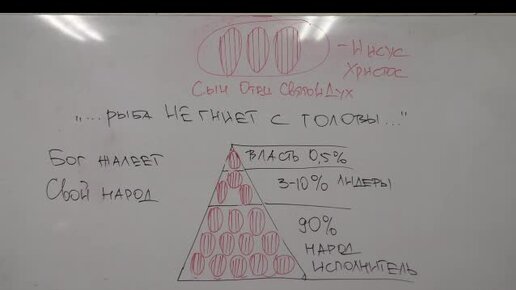 - Иисус
Христос
Сын Отец Святой Дух
„...РЫБА НЕ ГНИЕТ С ГОЛОВЫ..."
БОГ ЖАЛЕЕТ
СВОЙ НАРОД
ВЛАСТЬ 0,5%
3-10% ЛИДЕРЫ
90%
НАРОД
ИСПОЛНИТЕЛЬ